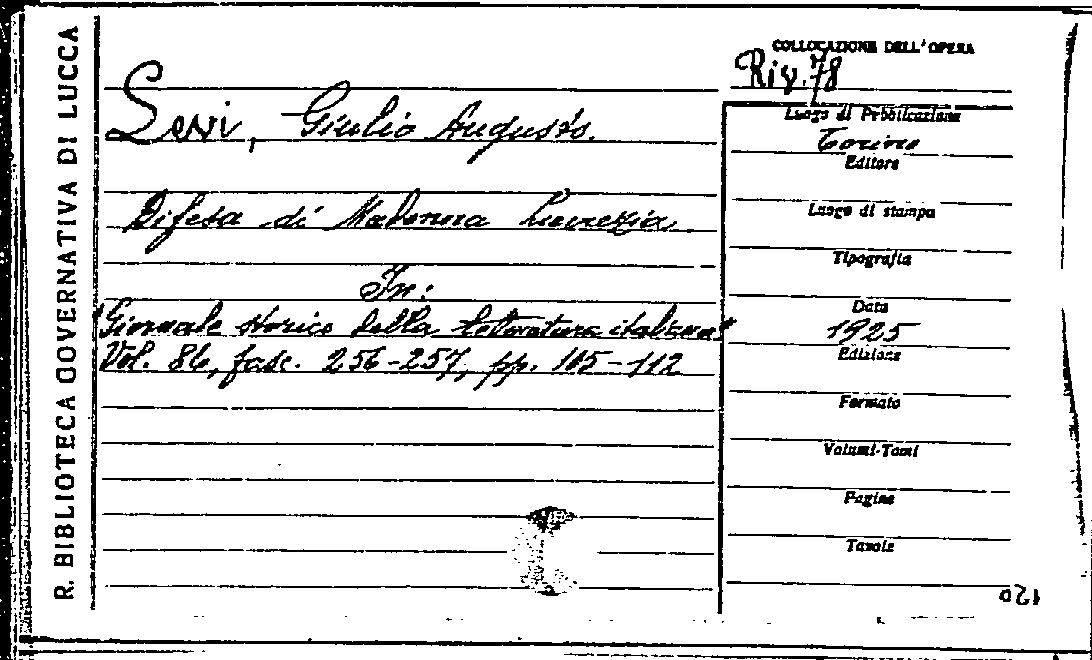 R. BIBLIOTECA GOVERNATIVA DI LUCCA
COLLOCAZIONE DELL'OPERA
Riv. 78
Levi, Giulio Augusto.
Difesa di Madonna Lucrezia
In:
"Giornale storico della letteratura italiana"
Vol. 86, fasc. 256-257, pp. 105-112
Luogo di Pubblicazione
Torino
Editore
Luogo di stampa
Tipografia
Data
1925
Edizione
Formato
Volumi-Tomi
Pagine
Tavole
120